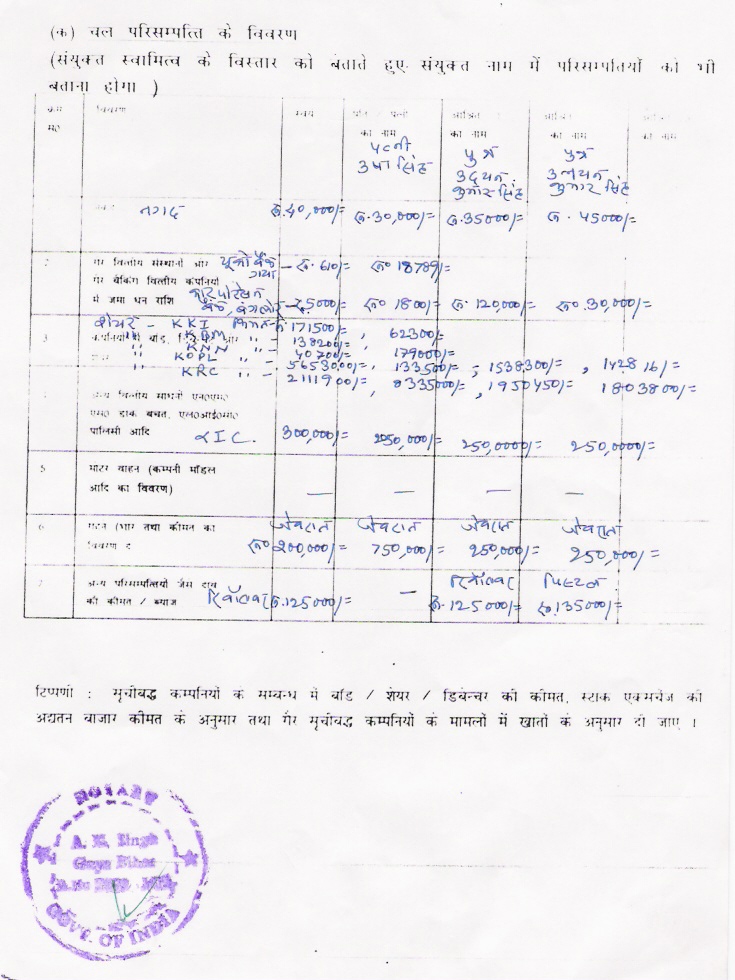 (क) चल परिसम्पत्ति के विवरण
(संयुक्त स्वामित्व के विस्तार को बताते हुए संयुक्त नाम में परिसम्पतियों को भी
बताना होगा )
विवरण स्वयं पति / पत्नी आश्रित
का नाम का नाम का नाम का नाम
पत्नी पुत्र पुत्र
उषा सिंह उदयन कुमार सिंह कुमार सिंह
नगद रु.40,000/= रु.30,000/= रु.35000/= रु. 45000/=
गैर वित्तीय संस्थानों और यूको बैंक गया – रु. 610/= रु० 18789/=
गैर बैंकिंग वित्तीय कंपनियों
में जमा धन राशि बैंक, बंगलोर – 25000/= रु० 1800/= रु. 120,000/= रु०.30,000/=
शेयर - KKI 171500/= , 62300/=
3 कंपनियों में बांड, " KBM " - 138200/=
" KNN " - 40700/= 179000/=
" KOPL " - 5653000/= , 133500/= , 1538300/= , 1428 16/=
KRC " - 2111900/= , 8335000/= , 1950450/= 1803800/=
अन्य वित्तीय साधनों एन०एस०
एस० डाक बचत, एल०आई०सी०
पालिसी आदि LIC. 300,000/= 250,000/= 250,0000/= 250,0000/=
5 मोटर वाहन (कम्पनी मॉडल — — — —
आदि का विवरण)
6 (भार तथा कीमत का जेवरात जेवरात जेवरात जेवरात
विवरण दें रु० 200,000/= 750,000/= 250,000/= 250,000/=
7 अन्य परिसम्पत्तियों जैसे दाव रिवॉल्वर पिस्टल
की कीमत / ब्याज रिवॉल्वर रु.125000/= — रु.125000/= रु.135000/=
टिप्पणी : सूचीबद्ध कम्पनियों के सम्बन्ध में बांड / शेयर / डिबेन्चर की कीमत, स्टाक एक्सचेंज की
अद्यतन बाजार कीमत के अनुसार तथा गैर सूचीबद्ध कम्पनियों के मामलों में खातों के अनुसार दी जाए ।
NOTARY
A. K. Singh
Gaya Bihar
GOVT. OF INDIA